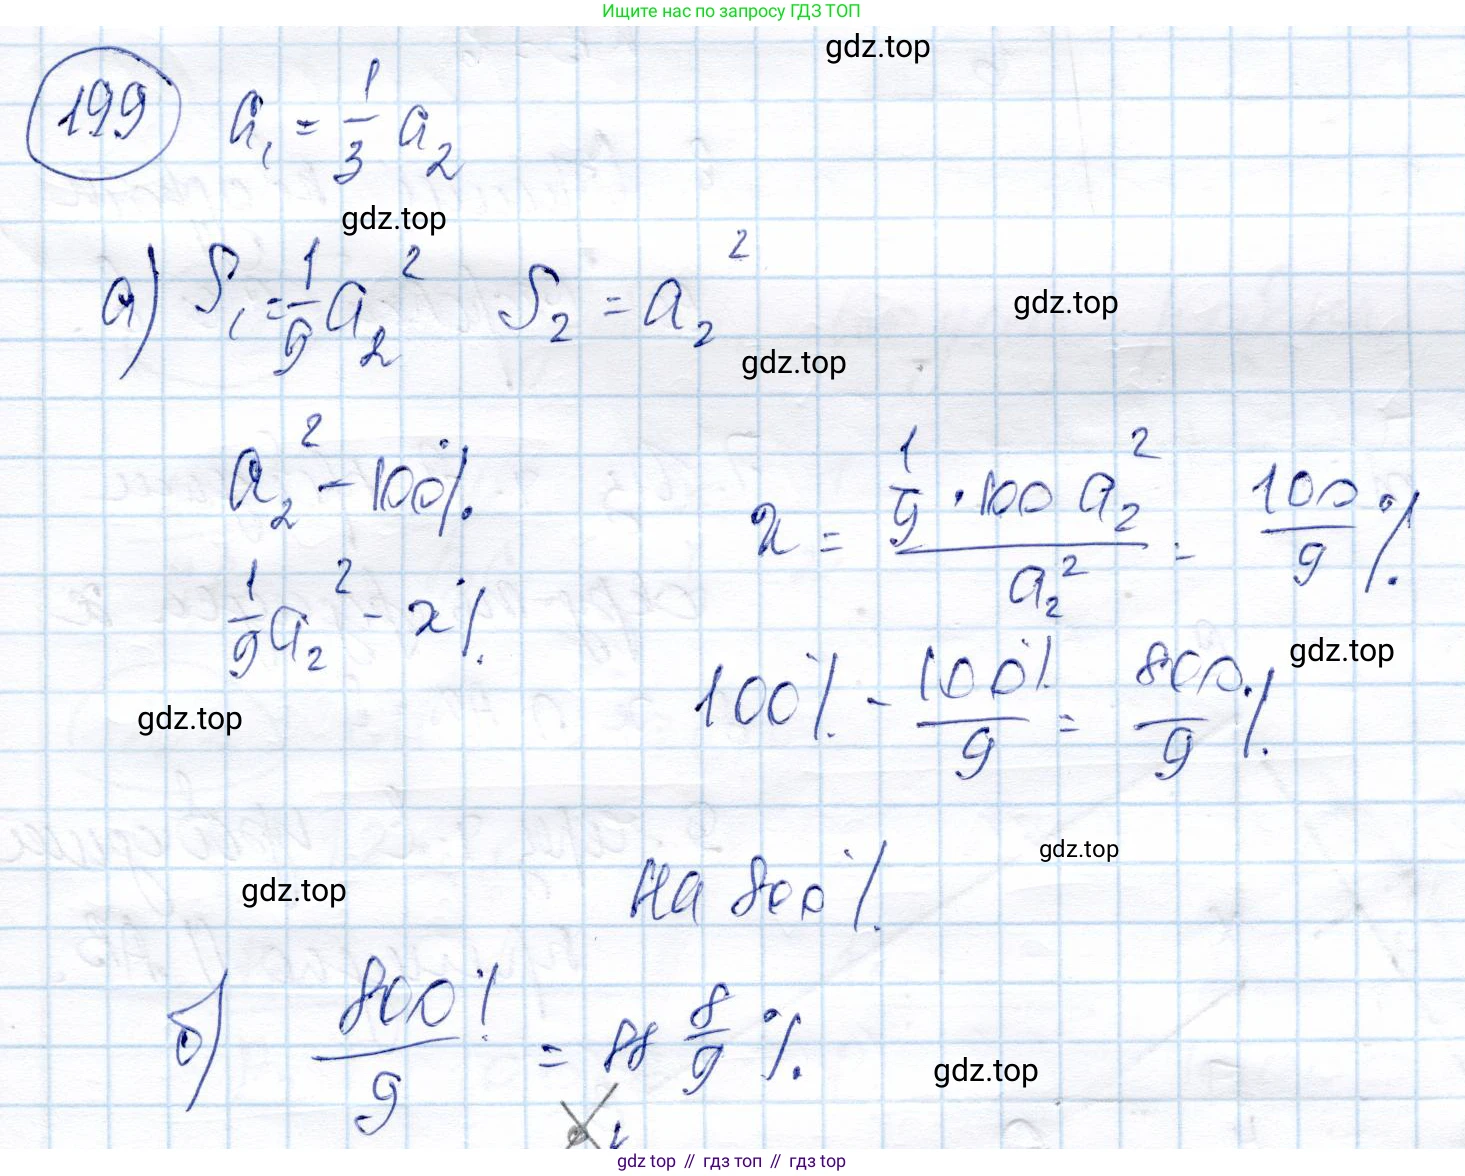 Ищите нас по запросу ГДЗ ТОП
gdz.top
199 a₁ = 1/3 a₂
gdz.top
а) S₁ = 1/9 a₂² S₂ = a₂²
gdz.top
gdz.top
a₂² - 100%
1/9 a₂² - x%
x = (1/9 · 100 a₂²)/a₂² = 100/9 %
gdz.top
gdz.top
100% - 100%/9 = 800/9 %
gdz.top
gdz.top
на 800%
б) 800%/9 = 88 8/9 %
gdz.top
gdz top // гдз топ // gdz top